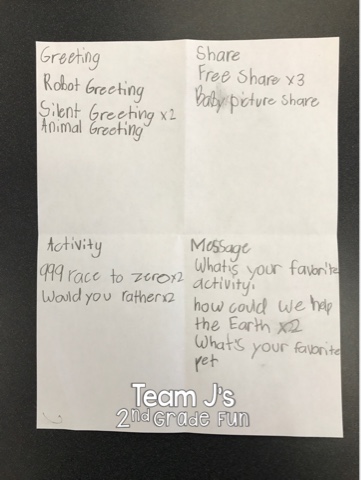 Greeting
Robot Greeting
Silent Greeting x2
Animal Greeting
Share
Free Share x3
Baby picture share
Activity
999 race to zero x2
Would you rather x2
Message
What's your favorite
activity.
how could we help
the Earth x2
What's your favorite
pet
Team J's
2nd Grade Fun